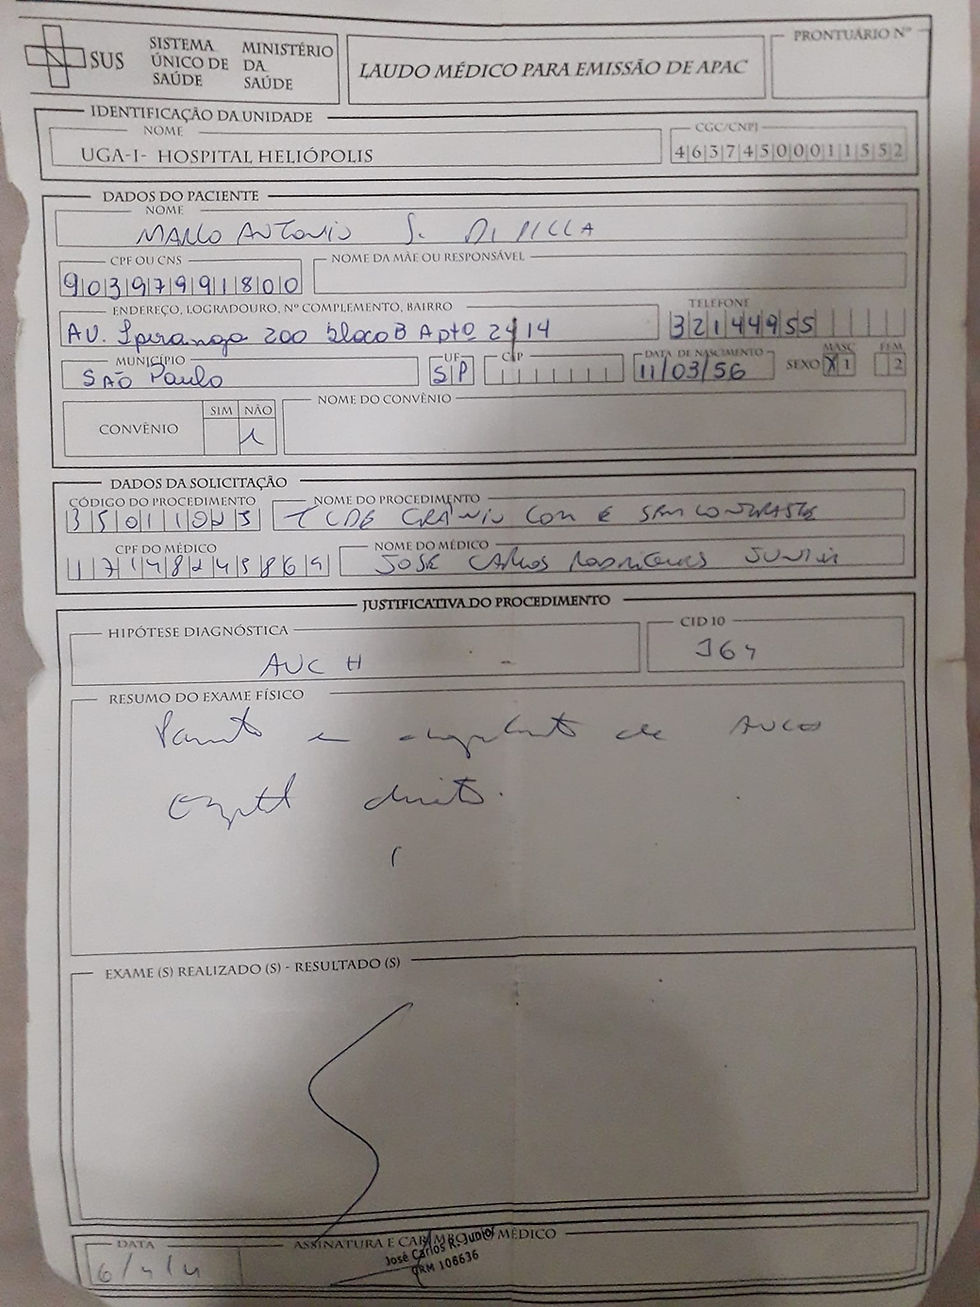 SUS
SISTEMA ÚNICO DE SAÚDE
MINISTÉRIO DA SAÚDE
LAUDO MÉDICO PARA EMISSÃO DE APAC
PRONTUÁRIO Nº
IDENTIFICAÇÃO DA UNIDADE
NOME
CGC/CNPJ
UGA-I- HOSPITAL HELIÓPOLIS
46374500011552
DADOS DO PACIENTE
NOME
MARCO ANTONIO S. DI
CPF OU CNS
NOME DA MÃE OU RESPONSÁVEL
90397991800
ENDEREÇO, LOGRADOURO, Nº COMPLEMENTO, BAIRRO
TELEFONE
AV. Ipiranga 200 bloco B Apto 2414
32144955
MUNICÍPIO
UF
CEP
DATA DE NASCIMENTO
SEXO
MASC
FEM
SÃO Paulo
SP
11/03/56
X 1
2
CONVÊNIO
SIM NÃO
NOME DO CONVÊNIO
DADOS DA SOLICITAÇÃO
CÓDIGO DO PROCEDIMENTO
NOME DO PROCEDIMENTO
TC DE CRÂNIO COM E SEM CONTRASTE
CPF DO MÉDICO
NOME DO MÉDICO
JOSÉ CARLOS RODRIGUES JUNIOR
JUSTIFICATIVA DO PROCEDIMENTO
HIPÓTESE DIAGNÓSTICA
CID 10
AVC H
I64
RESUMO DO EXAME FÍSICO
de AVCH
direito.
EXAME (S) REALIZADO (S) - RESULTADO (S)
DATA
ASSINATURA E CARIMBO DO MÉDICO
José Carlos R. Junior
CRM 106636